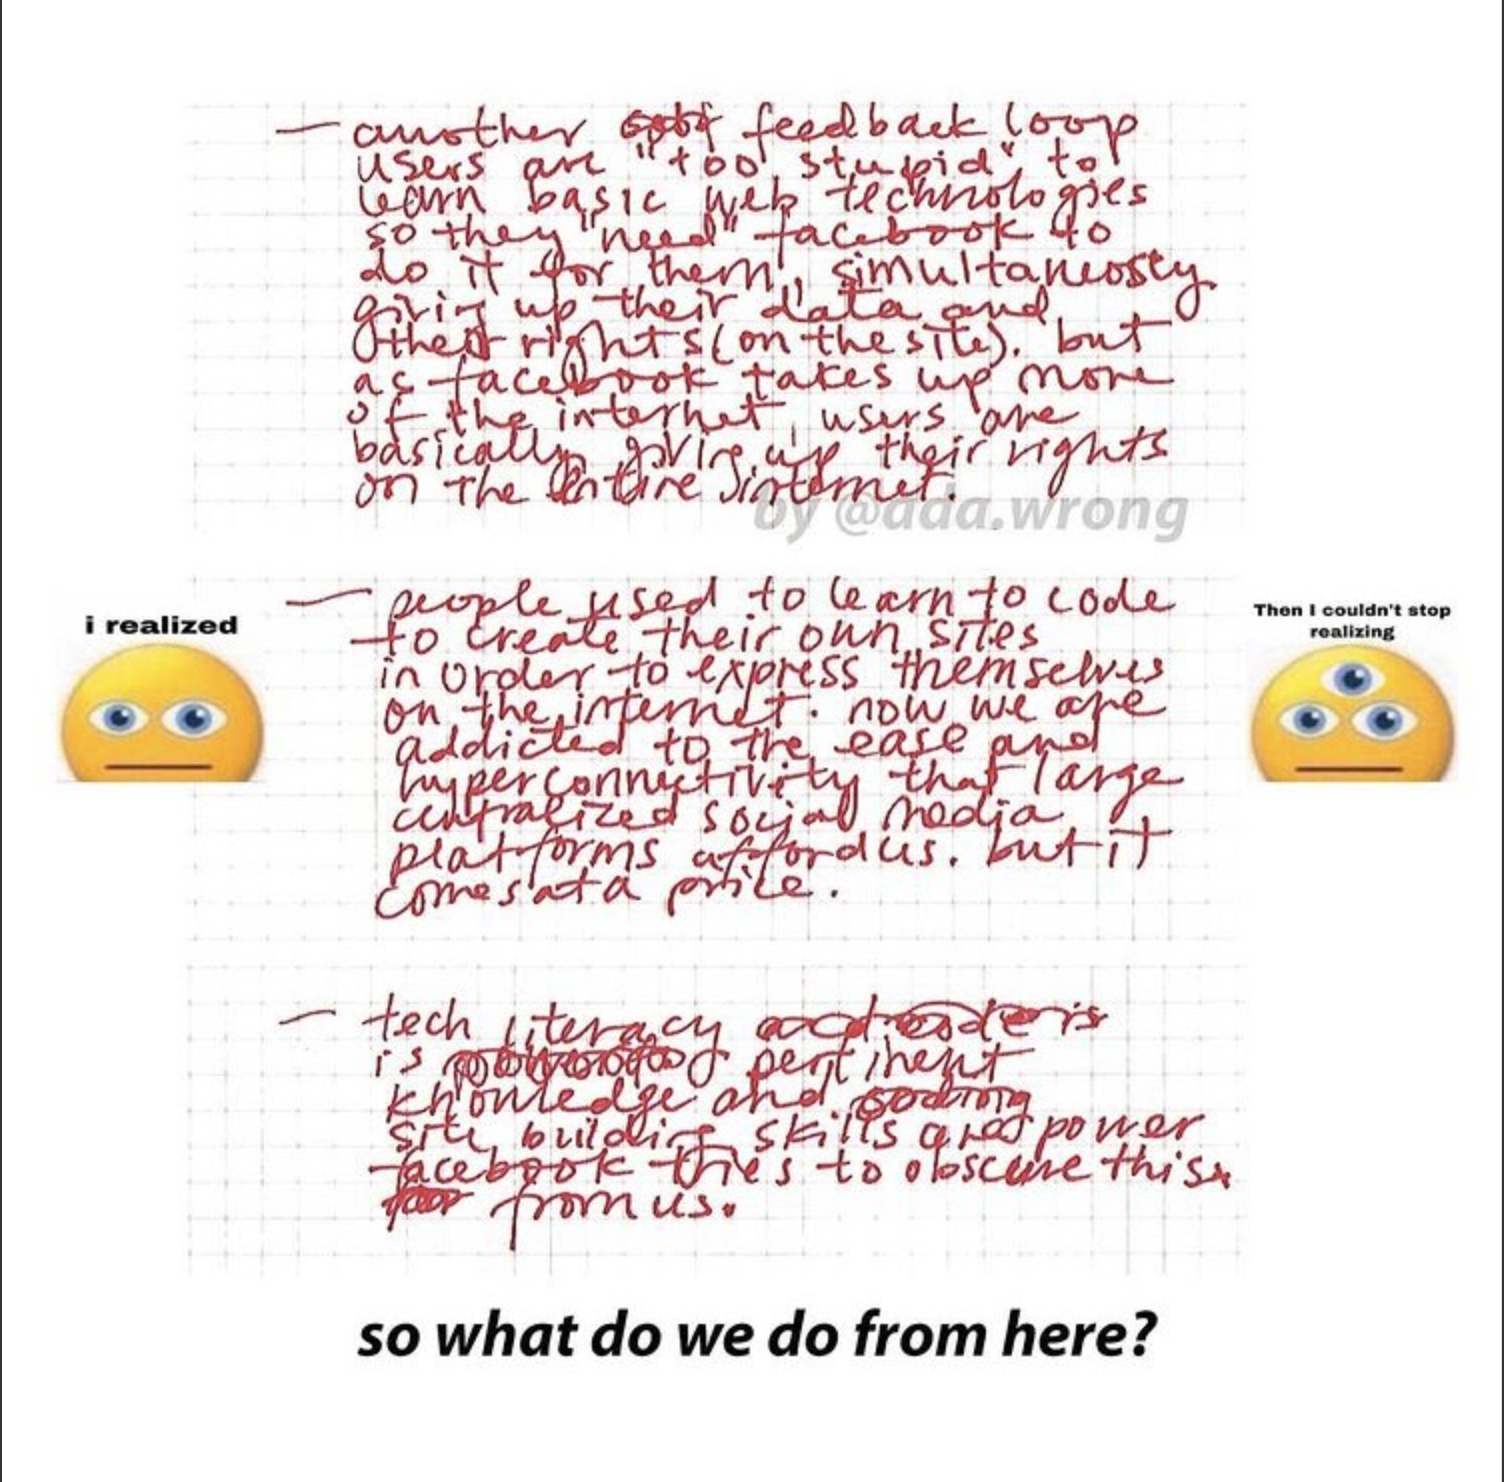 — another feedback loop
users are "too stupid" to
learn basic web technologies
so they "need" facebook to
do it for them, simultaneosly
giving up their data and
their rights (on the site). but
as facebook takes up more
of the internet, users are
basically giving up their rights
on the entire internet.
by @ada.wrong
i realized
— people used to learn to code
to create their own sites
in order to express themselves
on the internet. now we are
addicted to the ease and
hyperconnectivity that large
centralized social media
platforms afford us. but it
comes at a price.
Then I couldn't stop
realizing
— tech literacy
is pertinent
knowledge and
site building skills are power
facebook tries to obscure this
from us.
so what do we do from here?